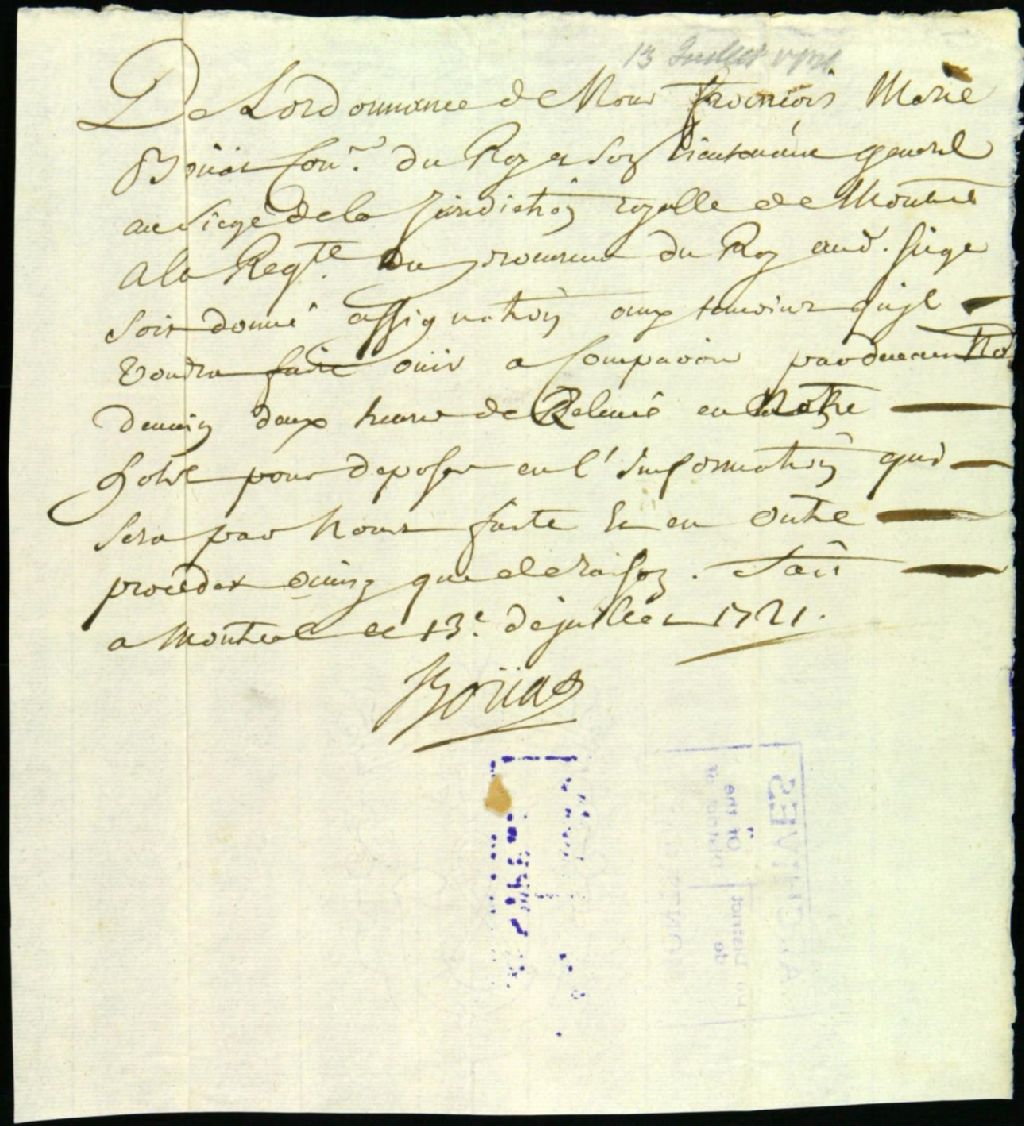 13 Juillet 1721
De Lordonnance de Nous francois Marie
Boüat Con.er du Roy et son lieutenant general
au siege de la Jurisdiction royalle de Montreal
A la Reqte. du procureur du Roy aud. siege
soit donné assignation aux temoins quil
voudra faire ouir a Comparoir pardevant Nous
demain deux heures de Relevé en Notre
hotel pour deposer en l'information qui
sera par Nous faite Et en Outre
proceder Ainsy que de raison. Fait
a Montreal ce 13e. de juillet 1721.
Boüat
ARCHIVES
Of the
District
de